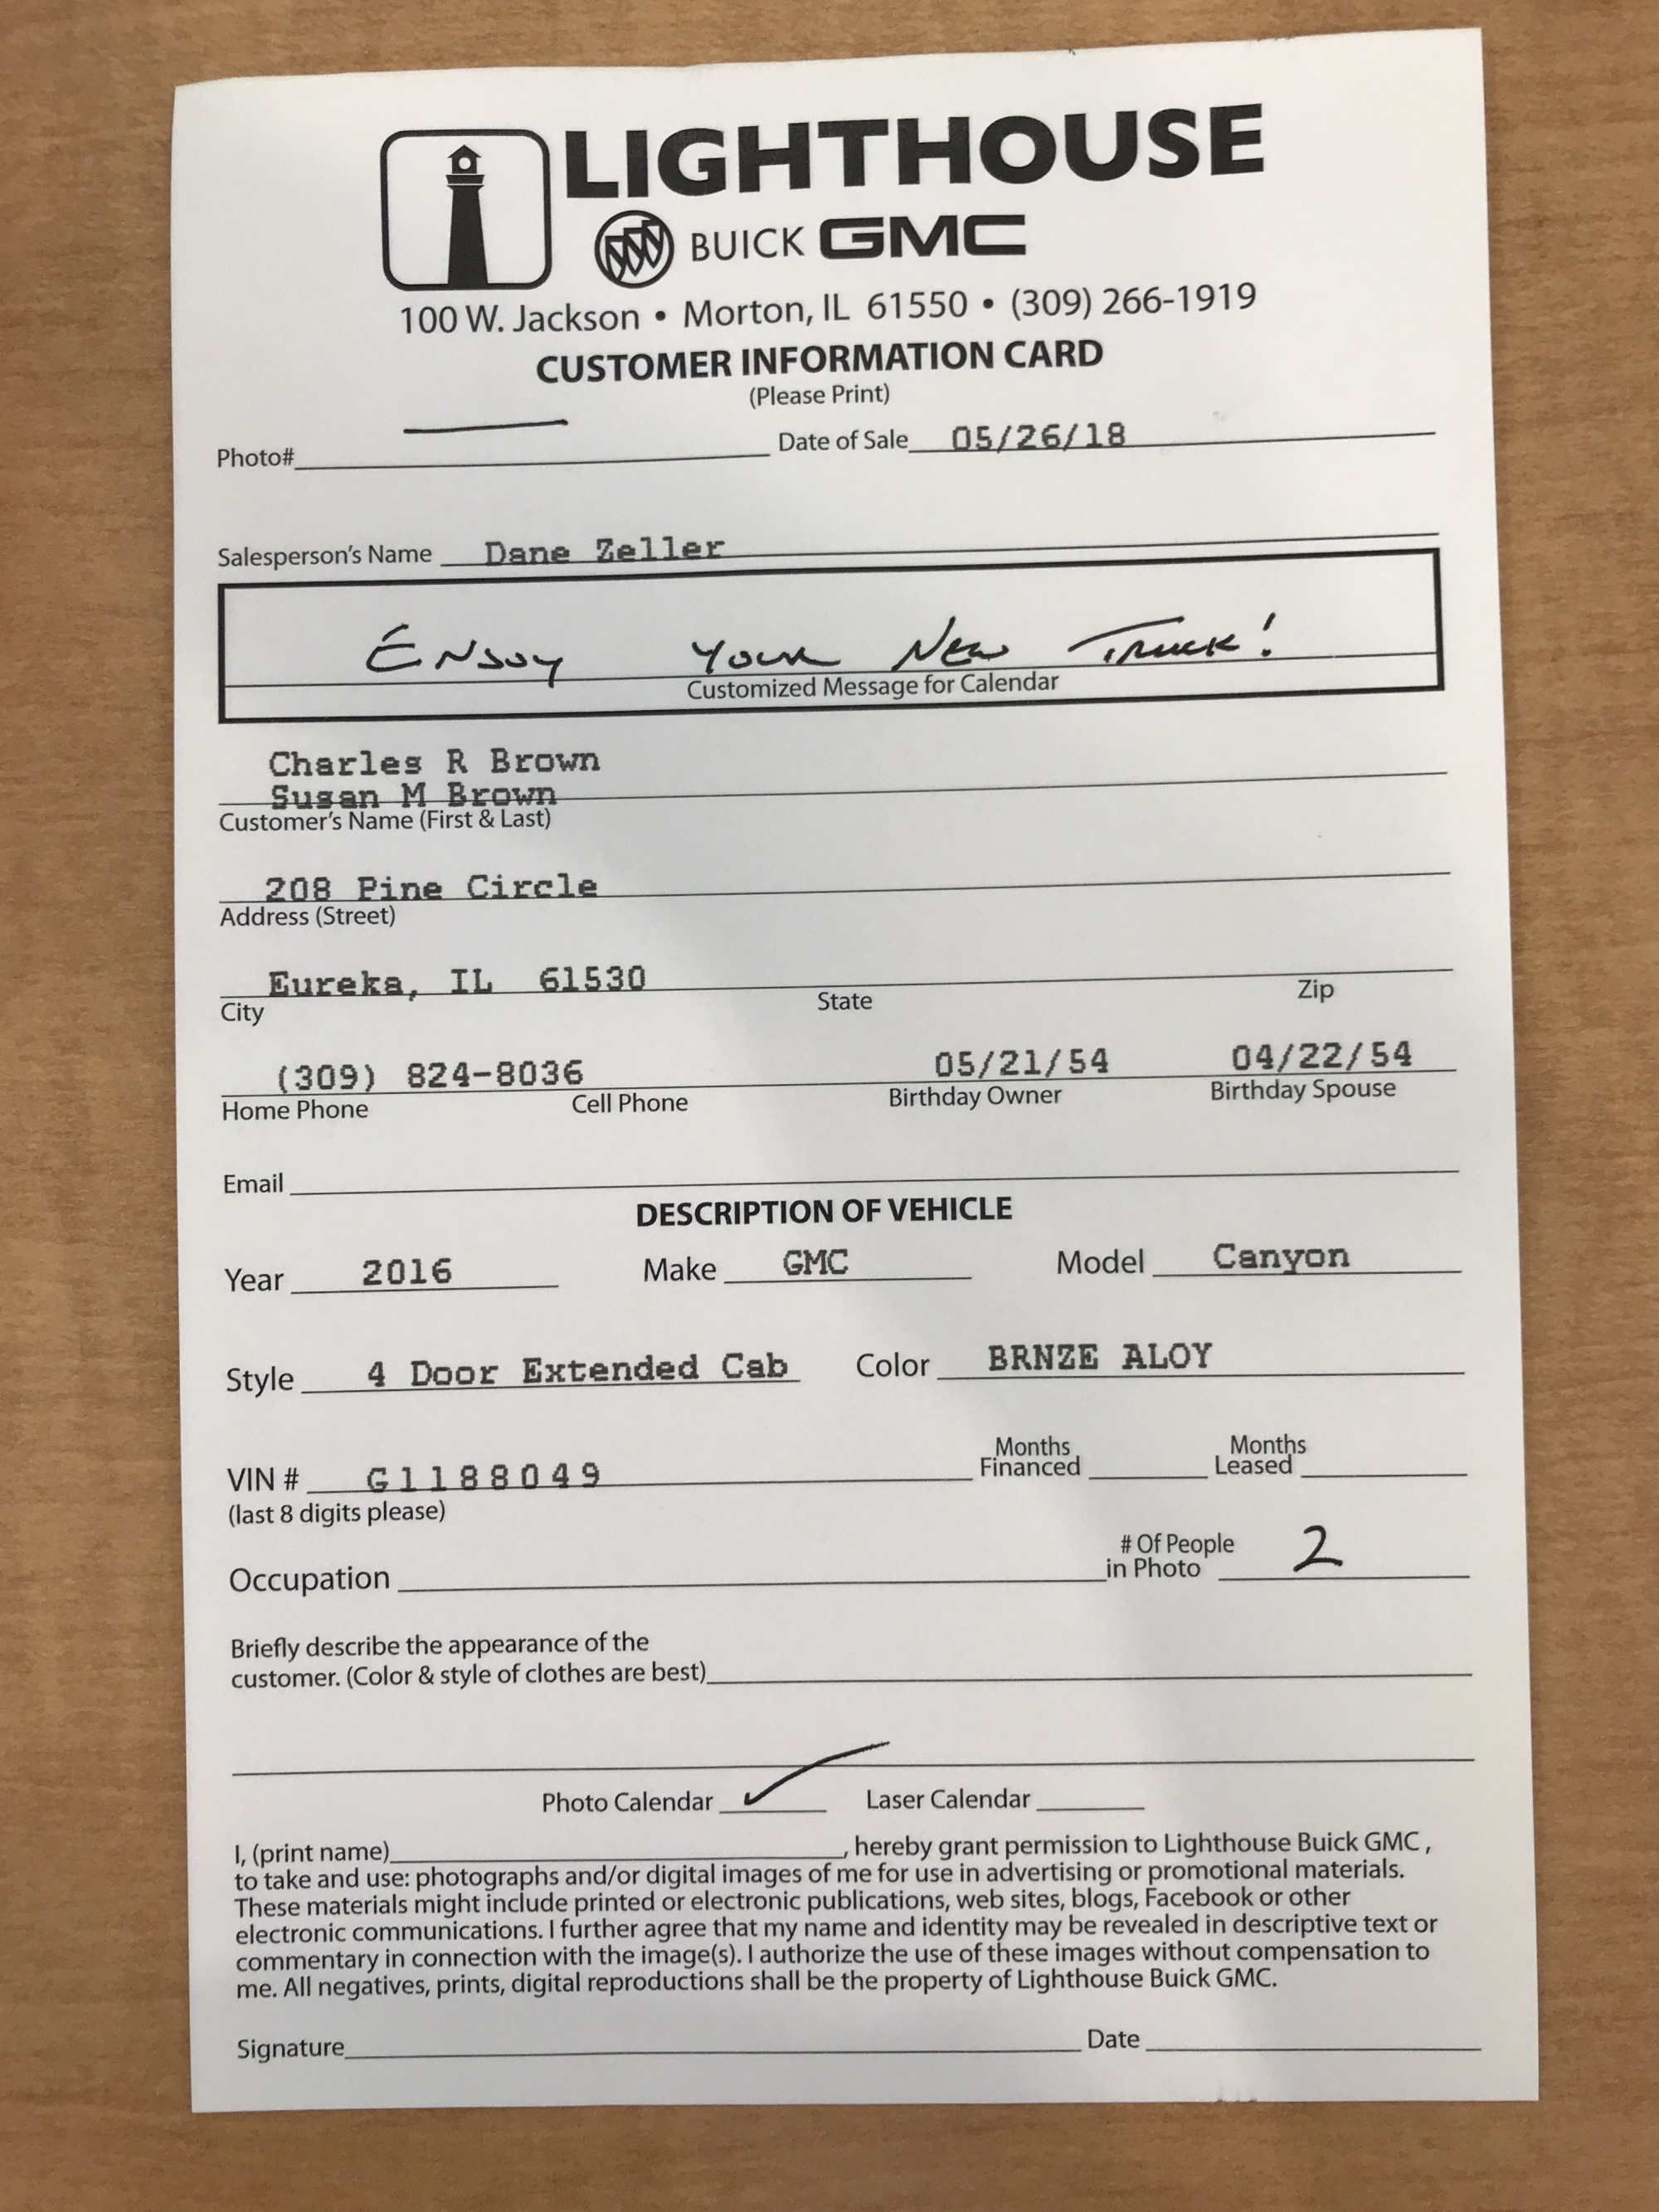 LIGHTHOUSE
BUICK GMC
100 W. Jackson • Morton, IL 61550 • (309) 266-1919
CUSTOMER INFORMATION CARD
(Please Print)
Photo# Date of Sale 05/26/18
Salesperson's Name Dane Zeller
Enjoy Your New Truck!
Customized Message for Calendar
Charles R Brown
Susan M Brown
Customer's Name (First & Last)
208 Pine Circle
Address (Street)
Eureka, IL 61530
City State Zip
(309) 824-8036 05/21/54 04/22/54
Home Phone Cell Phone Birthday Owner Birthday Spouse
Email
DESCRIPTION OF VEHICLE
Year 2016 Make GMC Model Canyon
Style 4 Door Extended Cab Color BRNZE ALOY
VIN # G1188049 Months Financed Months Leased
(last 8 digits please)
Occupation # Of People in Photo 2
Briefly describe the appearance of the
customer. (Color & style of clothes are best)
Photo Calendar ✓ Laser Calendar
I, (print name) , hereby grant permission to Lighthouse Buick GMC ,
to take and use: photographs and/or digital images of me for use in advertising or promotional materials.
These materials might include printed or electronic publications, web sites, blogs, Facebook or other
electronic communications. I further agree that my name and identity may be revealed in descriptive text or
commentary in connection with the image(s). I authorize the use of these images without compensation to
me. All negatives, prints, digital reproductions shall be the property of Lighthouse Buick GMC.
Signature Date